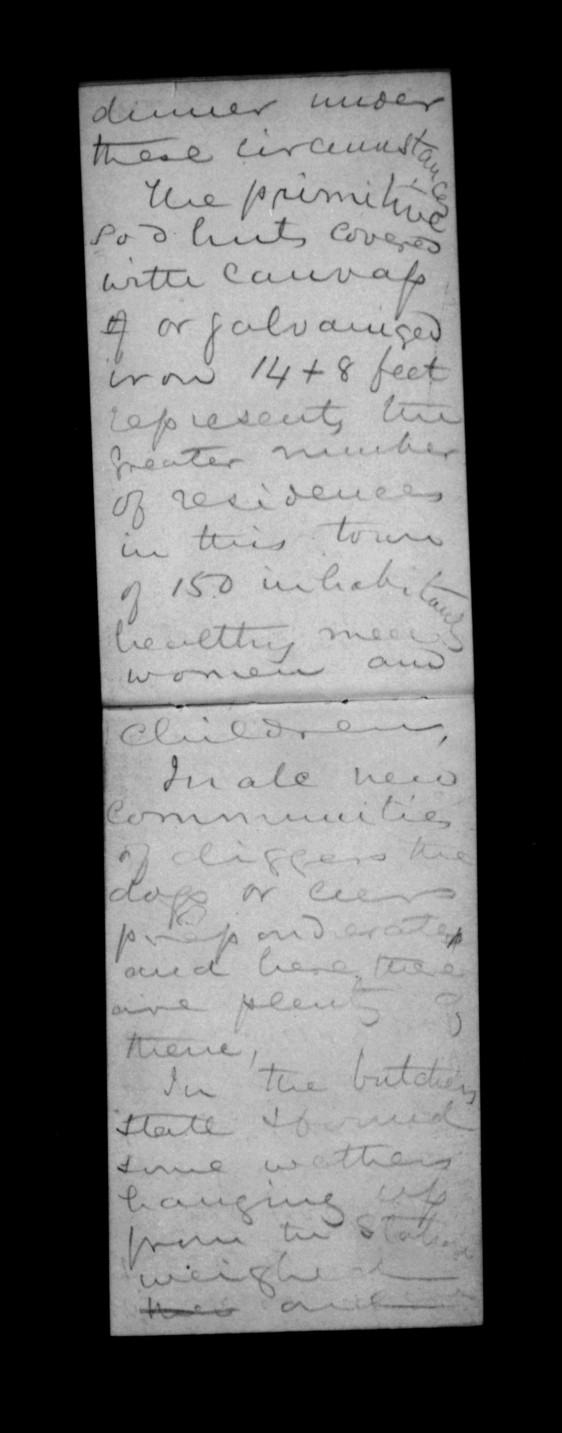 dinner under
these circumstances
The primitive
sod huts covered
with canvass
or galvanized
iron 14 + 8 feet
represents the
greater number
of residences
in this town
of 150 inhabitants
healthy men
women and
children,
In all new
communities
of diggers the
dogs or curs
preponderate
and here there
are plenty of
them,
In the butchers
state I found
some wethers
hanging up
from the Station
weighed
and